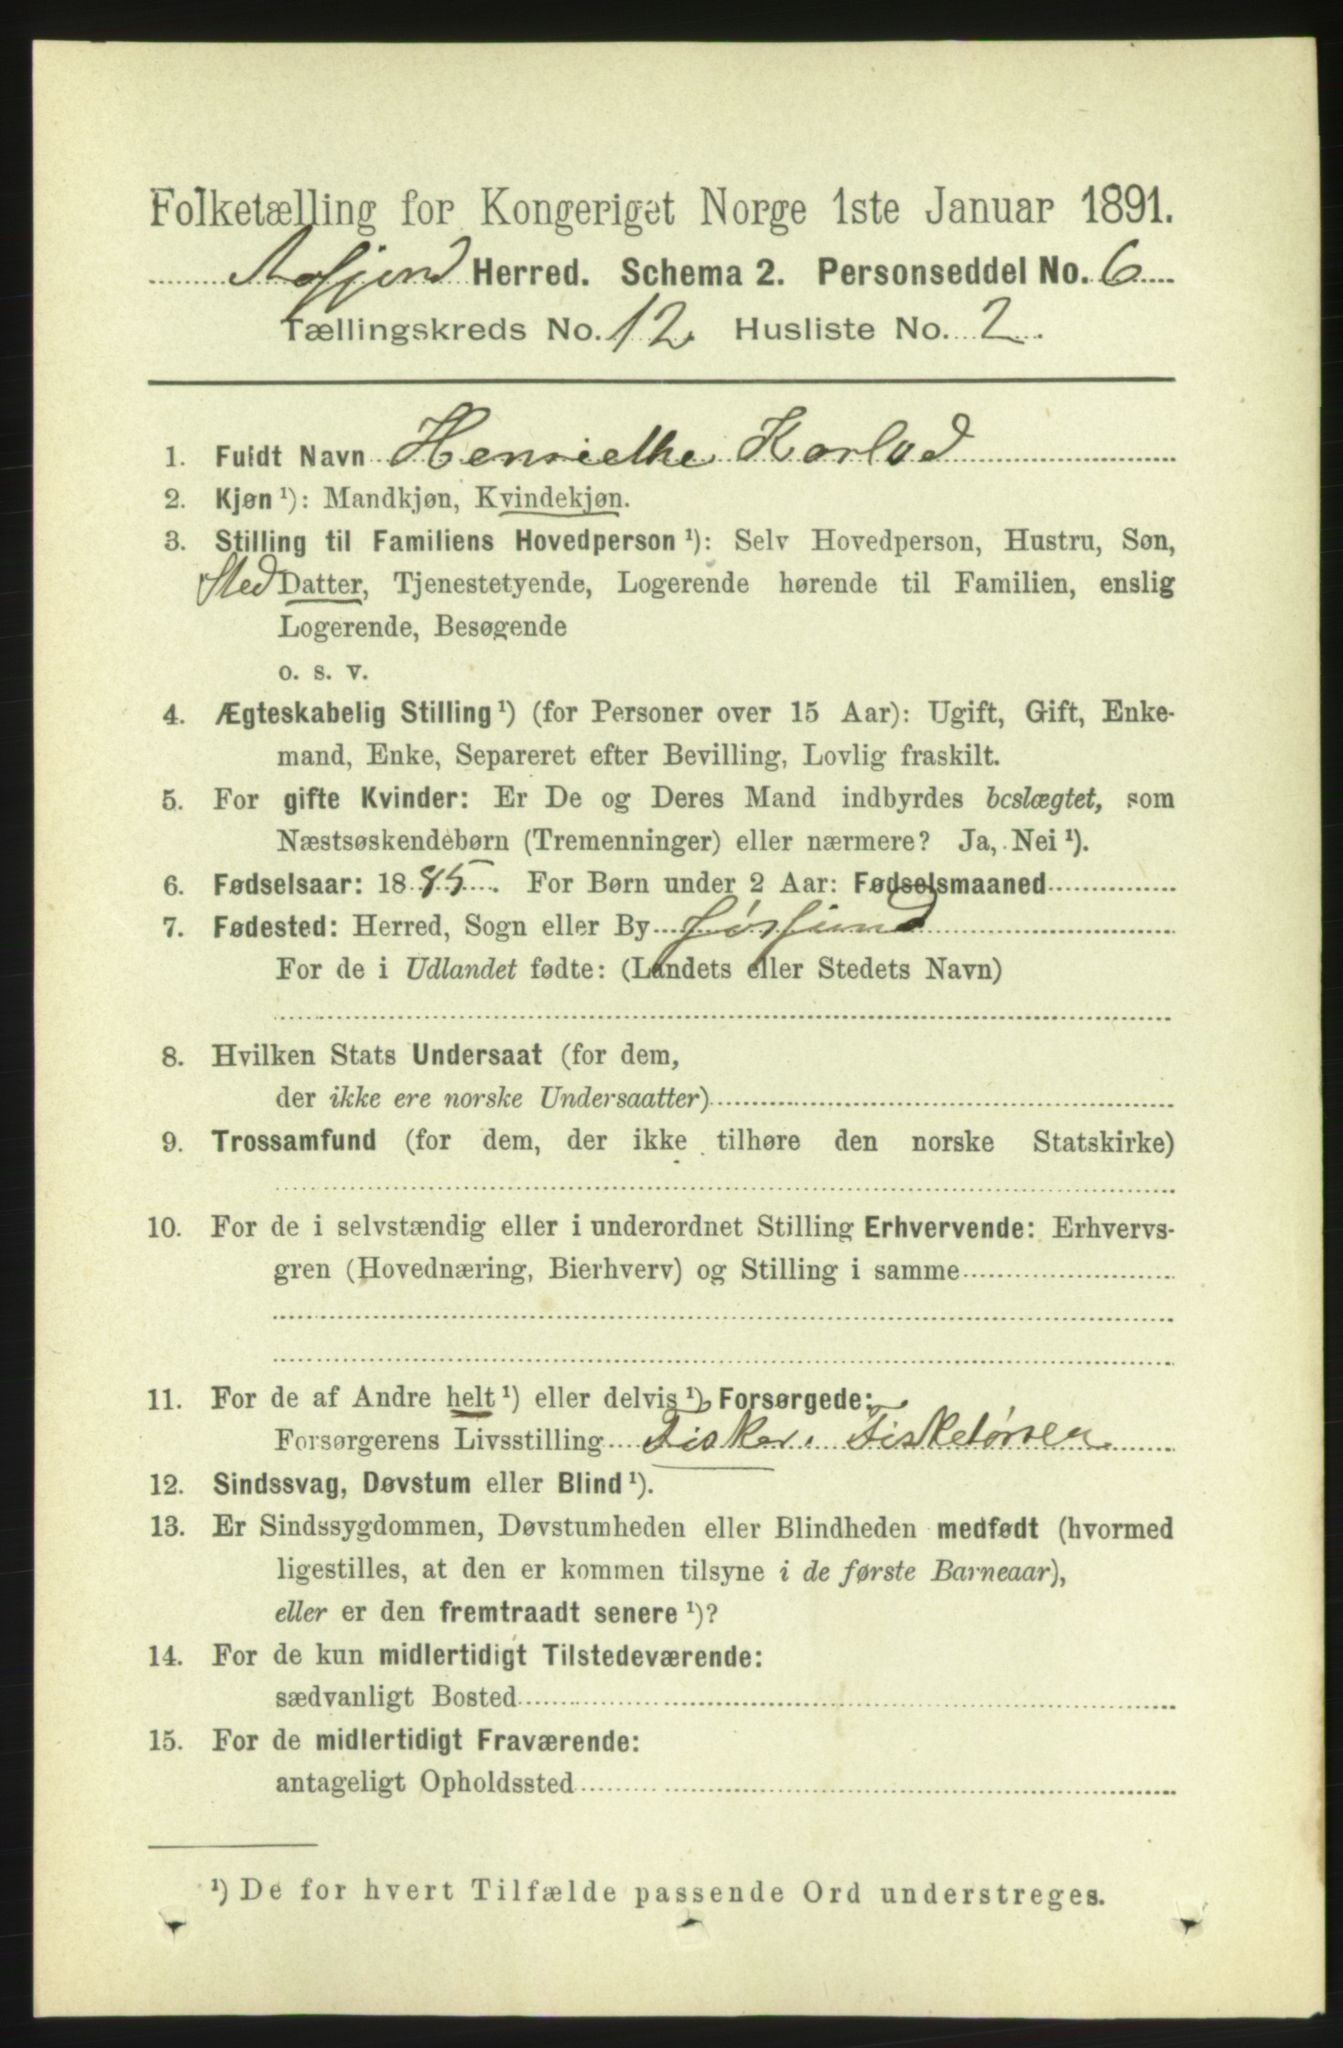 Folketælling for Kongeriget Norge 1ste Januar 1891.
Aafjord Herred. Schema 2. Personseddel No. 6
Tællingskreds No. 12 Husliste No. 2.
1. Fuldt Navn Henriethe Karlsd
2. Kjøn ¹): Mandkjøn, Kvindekjøn.
3. Stilling til Familiens Hovedperson ¹): Selv Hovedperson, Hustru, Søn,
Sted Datter, Tjenestetyende, Logerende hørende til Familien, enslig
Logerende, Besøgende
o. s. v.
4. Ægteskabelig Stilling ¹) (for Personer over 15 Aar): Ugift, Gift, Enke-
mand, Enke, Separeret efter Bevilling, Lovlig fraskilt.
5. For gifte Kvinder: Er De og Deres Mand indbyrdes beslægtet, som
Næstsøskendebørn (Tremenninger) eller nærmere? Ja, Nei ¹).
6. Fødselsaar: 1885. For Børn under 2 Aar: Fødselsmaaned
7. Fødested: Herred, Sogn eller By Jøssund
For de i Udlandet fødte: (Landets eller Stedets Navn)
8. Hvilken Stats Undersaat (for dem,
der ikke ere norske Undersaatter)
9. Trossamfund (for dem, der ikke tilhøre den norske Statskirke)
10. For de i selvstændig eller i underordnet Stilling Erhvervende: Erhvervs-
gren (Hovednæring, Bierhverv) og Stilling i samme
11. For de af Andre helt ¹) eller delvis ¹) Forsørgede:
Forsørgerens Livsstilling Fisker.
12. Sindssvag, Døvstum eller Blind ¹).
13. Er Sindssygdommen, Døvstumheden eller Blindheden medfødt (hvormed
ligestilles, at den er kommen tilsyne i de første Barneaar),
eller er den fremtraadt senere ¹)?
14. For de kun midlertidigt Tilstedeværende:
sædvanligt Bosted
15. For de midlertidigt Fraværende:
antageligt Opholdssted
¹) De for hvert Tilfælde passende Ord understreges.